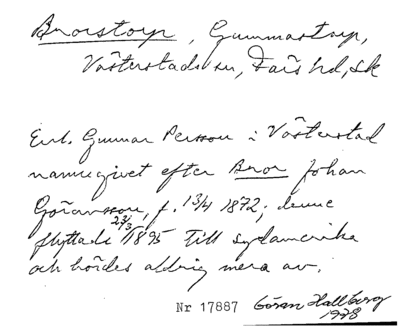 Brorstorp, Gummastorp,
Västerstads sn, Färs hd, Sk
Enl. Gunnar Persson i Västerstad
namngivet efter Bror Johan
Göransson, f. 13/4 1872; denne
flyttade 23/3 1895 till sydamerika
och hördes aldrig mera av.
Nr 17887 Göran Hallberg
1978